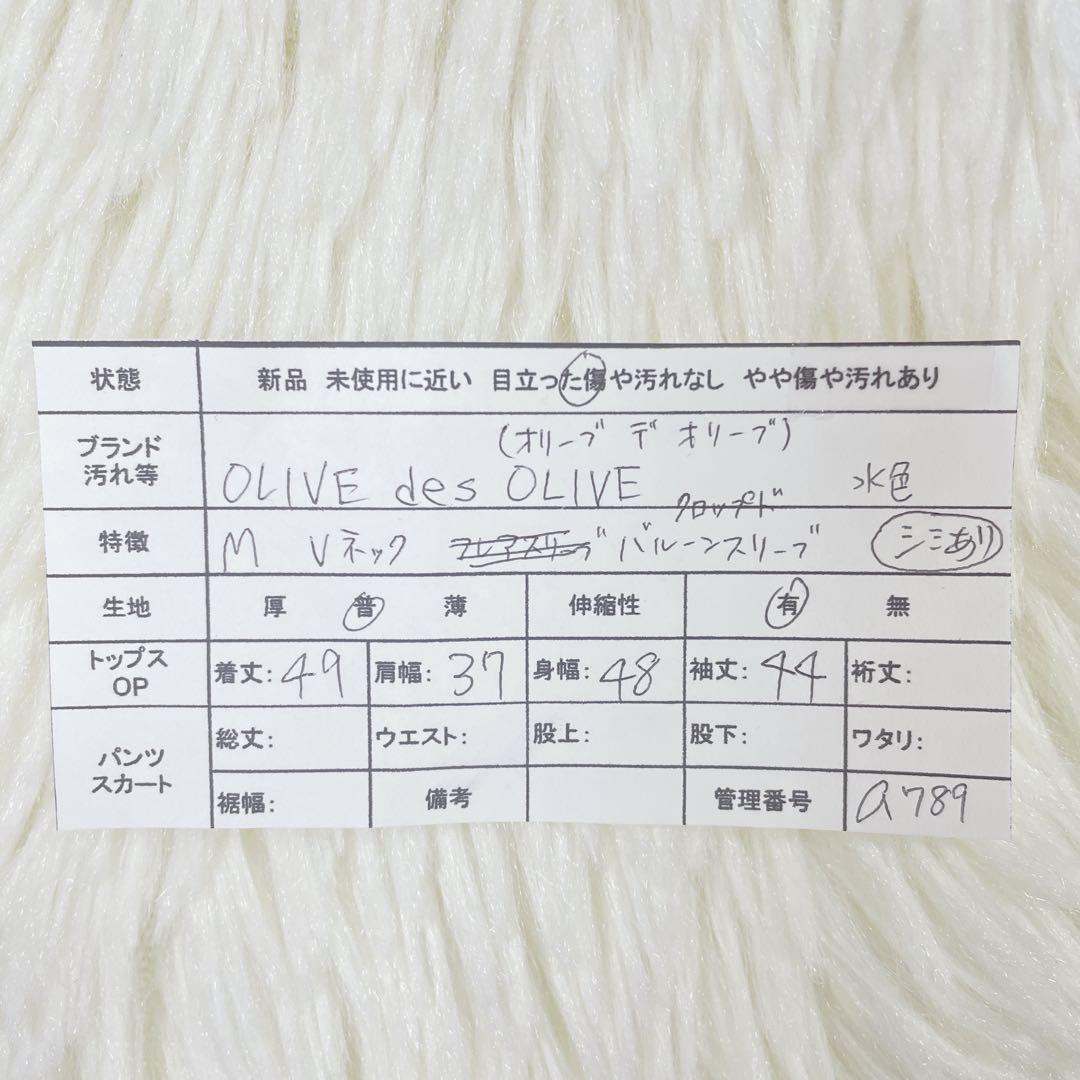 状態 新品 未使用に近い 目立った傷や汚れなし やや傷や汚れあり
ブランド
汚れ等
(オリーブ デ オリーブ)
OLIVE des OLIVE 水色
クロップド
特徴 M Vネック フレアスリーブ バルーンスリーブ シミあり
生地 厚 普 薄 伸縮性 有 無
トップス
OP
着丈:49 肩幅:37 身幅:48 袖丈:44 裄丈:
パンツ
スカート
総丈: ウエスト: 股上: 股下: ワタリ:
裾幅: 備考 管理番号 a789